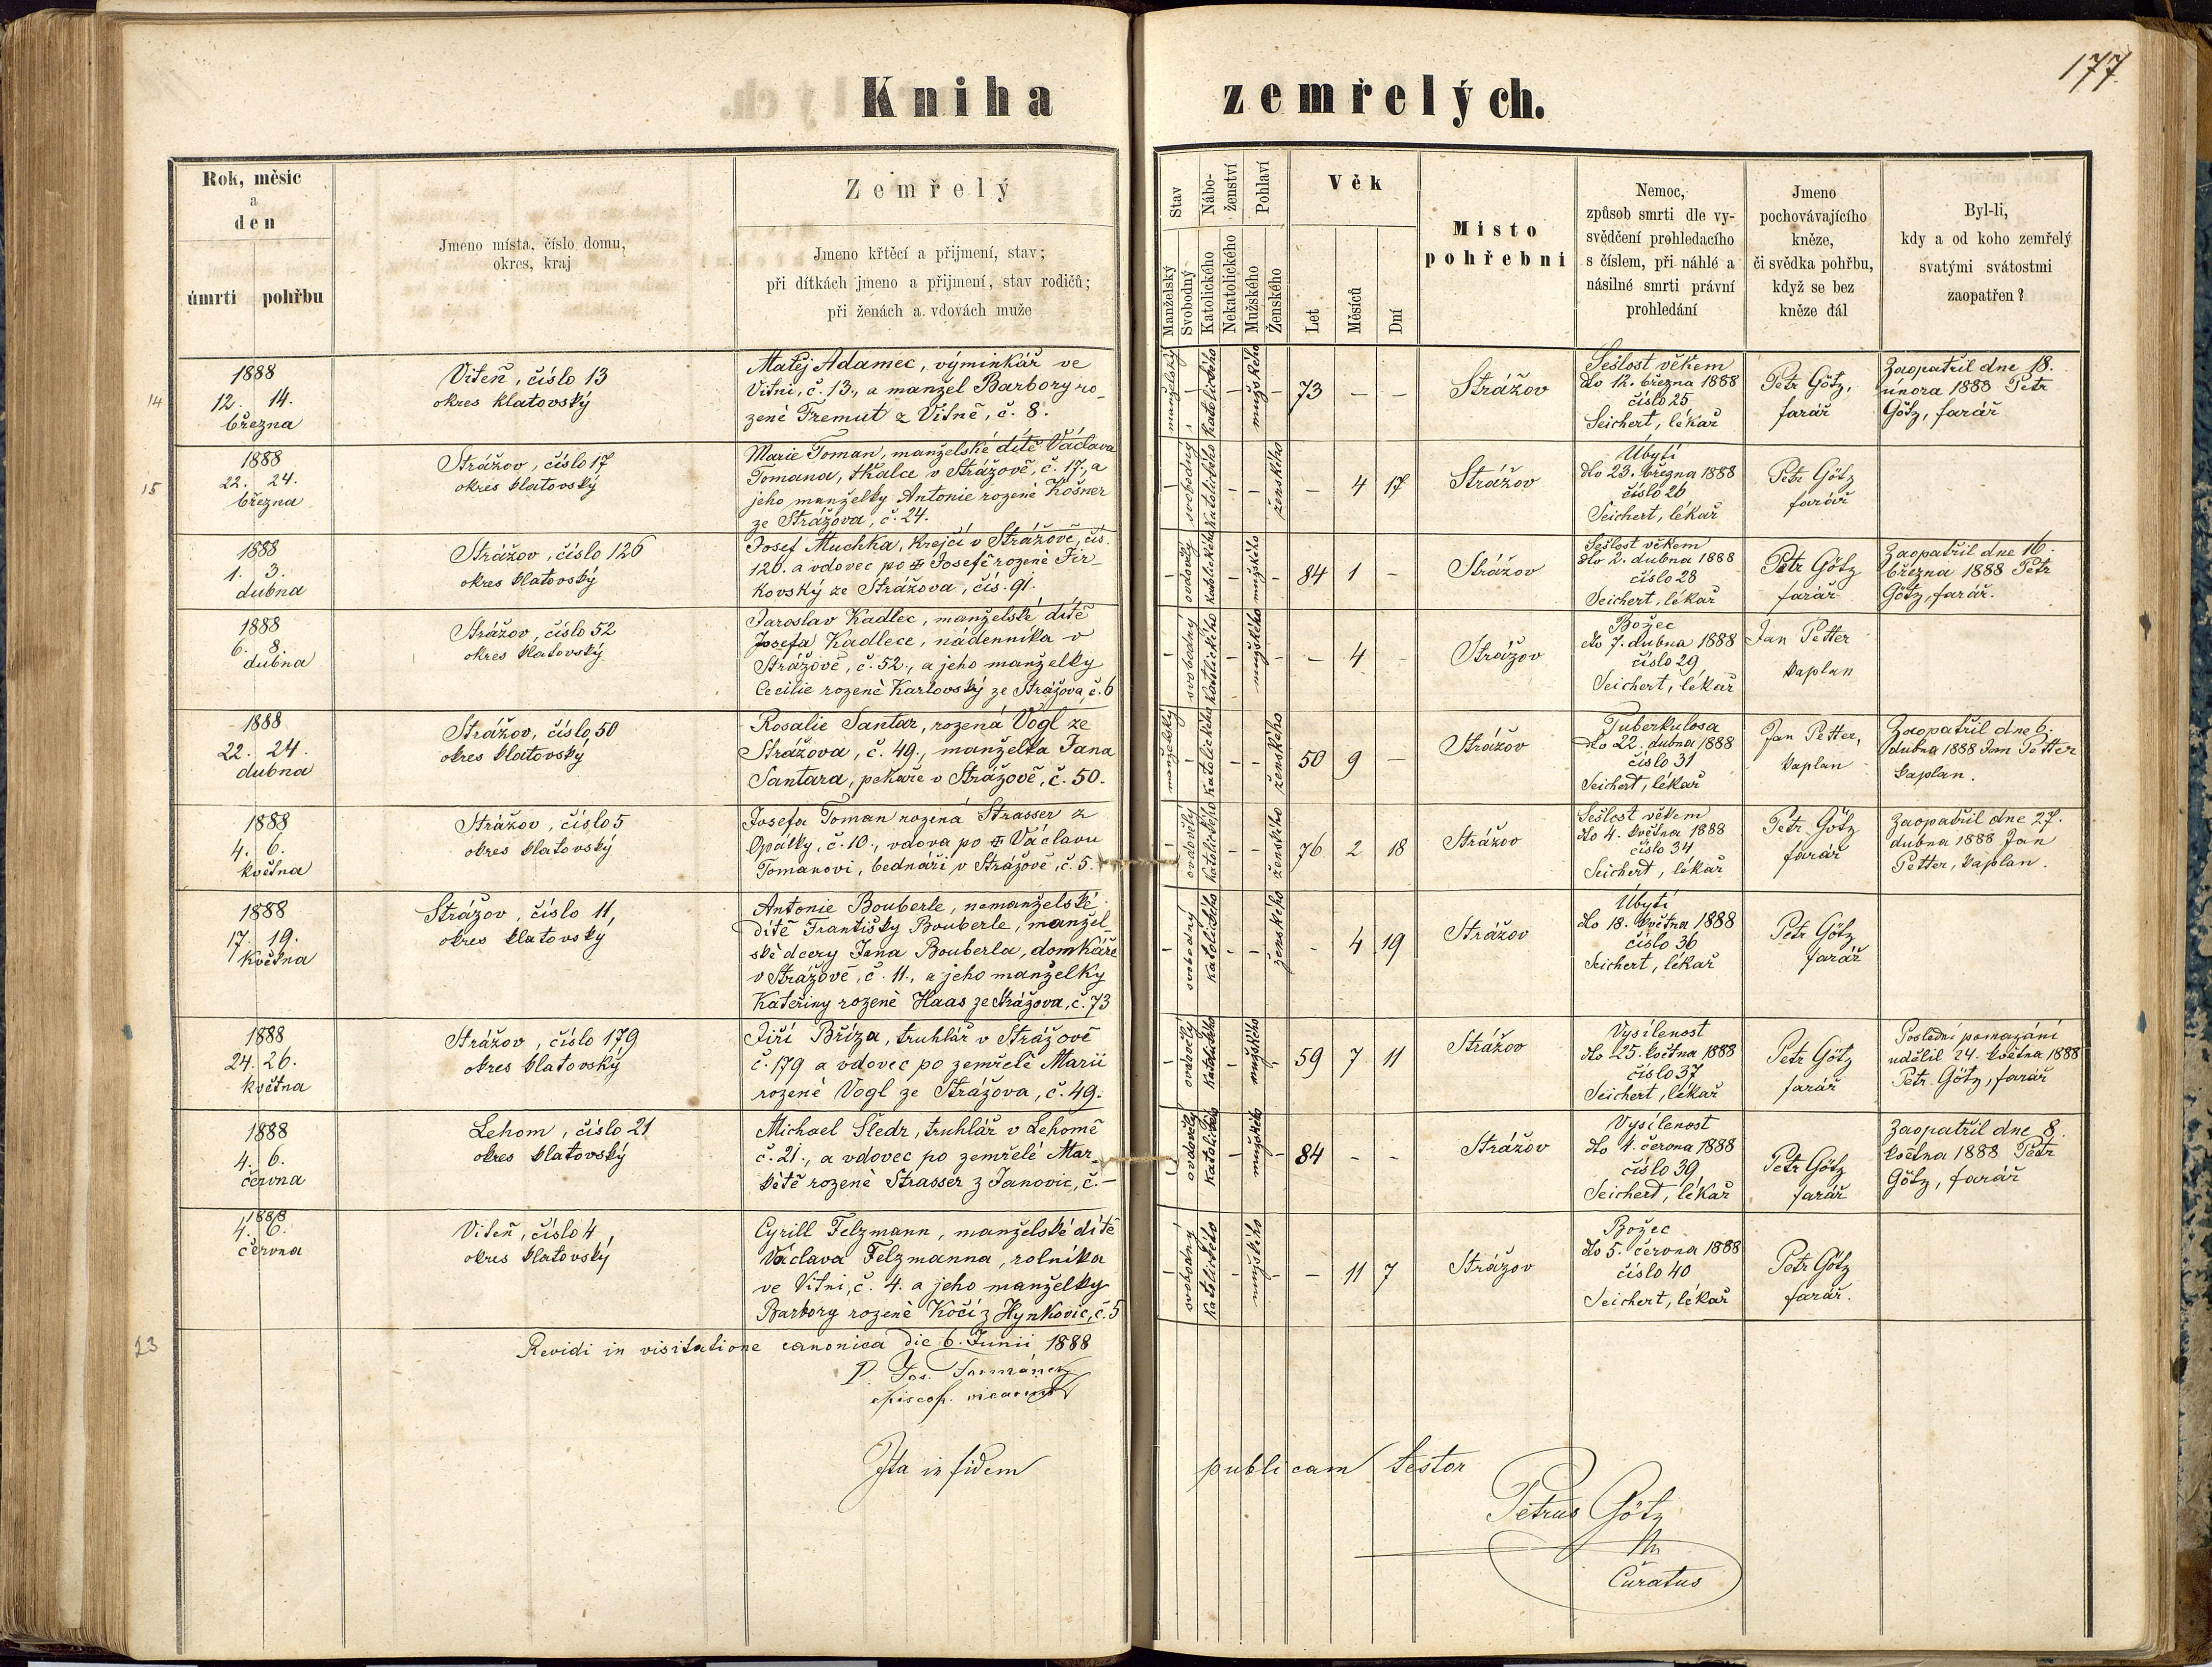 177
Kniha zemřelých.
Rok, měsíc
a
den
úmrtí pohřbu
Jmeno místa, číslo domu,
okres, kraj
Zemřelý
Jmeno křtěcí a přijmení, stav;
při dítkách jmeno a přijmení, stav rodičů;
při ženách a vdovách muže
Stav
Manželský
Svobodný
Nábo-
ženství
Katolického
Nekatolického
Pohlaví
Mužského
Ženského
Věk
Let
Měsíců
Dní
Místo
pohřební
Nemoc,
způsob smrti dle vy-
svědčení prohledacího
s číslem, při náhlé a
násilné smrti právní
prohledání
Jmeno
pochovávajícího
kněze,
či svědka pohřbu,
když se bez
kněze dál
Byl-li,
kdy a od koho zemřelý
svatými svátostmi
zaopatřen?
14
1888
12. 14.
března
Viteň, číslo 13
okres klatovský
Matěj Adamec, výminkář ve
Vitni, č. 13., a manžel Barbory ro-
zené Fremut z Vitně, č. 8.
manželský
katolického
mužského
73 – –
Strážov
Sešlost věkem
dto 12. března 1888
číslo 25
Seichert, lékař
Petr Götz,
farář
Zaopatřil dne 18.
února 1888 Petr
Götz, farář
15
1888
22. 24.
března
Strážov, číslo 17
okres klatovský
Marie Toman, manželské dítě Václava
Tomana, tkalce v Strážově, č. 17., a
jeho manželky Antonie rozené Košner
ze Strážova, č. 24.
svobodný
katolického
ženského
– 4 17
Strážov
Úbytí
dto 23. března 1888
číslo 26
Seichert, lékař
Petr Götz
farář
1888
1. 3.
dubna
Strážov, číslo 126
okres klatovský
Josef Muchka, krejčí v Strážově, čís.
126. a vdovec po ✠ Josefě rozené Jir-
kovský ze Strážova, čís. 91.
ovdovělý
katolického
mužského
84 1 –
Strážov
Sešlost věkem
dto 2. dubna 1888
číslo 28
Seichert, lékař
Petr Götz
farář
Zaopatřil dne 16.
března 1888 Petr
Götz, farář.
1888
6. 8.
dubna
Strážov, číslo 52
okres klatovský
Jaroslav Kadlec, manželské dítě
Josefa Kadlece, nádenníka v
Strážově, č. 52., a jeho manželky
Cecilie rozené Karlovský ze Strážova, č. 6
svobodný
katolického
mužského
– 4 –
Strážov
Božec
dto 7. dubna 1888
číslo 29
Seichert, lékař
Jan Petter
kaplan
1888
22. 24.
dubna
Strážov, číslo 50
okres klatovský
Rosalie Santar, rozená Vogl ze
Strážova, č. 49., manželka Jana
Santara, pekaře v Strážově, č. 50.
manželský
katolického
ženského
50 9 –
Strážov
Tuberkulosa
dto 22. dubna 1888
číslo 31
Seichert, lékař
Jan Petter,
kaplan
Zaopatřil dne 6.
dubna 1888 Jan Petter
kaplan.
1888
4. 6.
května
Strážov, číslo 5
okres klatovský
Josefa Toman rozená Strasser z
Opálky, č. 10., vdova po ✠ Václavu
Tomanovi, bednáři v Strážově, č. 5.
ovdovělý
katolického
ženského
76 2 18
Strážov
Sešlost věkem
dto 4. května 1888
číslo 34
Seichert, lékař
Petr Götz
farář
Zaopatřil dne 27.
dubna 1888 Jan
Petter, kaplan.
1888
17. 19.
května
Strážov, číslo 11,
okres klatovský
Antonie Bouberle, nemanželské
dítě Františky Bouberle, manžel-
ské dcery Jana Bouberla, domkáře
v Strážově, č. 11., a jeho manželky
Kateřiny rozené Haas ze Strážova, č. 73
svobodný
katolického
ženského
– 4 19
Strážov
Úbytí
dto 18. května 1888
číslo 36
Seichert, lékař
Petr Götz
farář
1888
24. 26.
května
Strážov, číslo 179
okres klatovský
Jiří Bříza, truhlář v Strážově
č. 179 a vdovec po zemřelé Marii
rozené Vogl ze Strážova, č. 49.
ovdovělý
katolického
mužského
59 7 11
Strážov
Vysílenost
dto 25. května 1888
číslo 37
Seichert, lékař
Petr Götz
farář
Poslední pomazání
udělil 24. května 1888
Petr Götz, farář
1888
4. 6.
června
Lehom, číslo 21
okres klatovský
Michael Šledr, truhlář v Lehomě
č. 21., a vdovec po zemřelé Mar-
kétě rozené Strasser z Janovic, č. –
ovdovělý
katolického
mužského
84 – –
Strážov
Vysílenost
dto 4. června 1888
číslo 39
Seichert, lékař
Petr Götz
farář
Zaopatřil dne 8.
května 1888 Petr
Götz, farář
1888
4. 6.
června
Viteň, číslo 4,
okres klatovský
Cyrill Felzmann, manželské dítě
Václava Felzmanna, rolníka
ve Vitni, č. 4. a jeho manželky
Barbory rozené Kočí z Hynkovic, č. 5
svobodný
katolického
mužského
– 11 7
Strážov
Božec
dto 5. června 1888
číslo 40
Seichert, lékař
Petr Götz
farář.
23
Revidi in visitatione canonica die 6. Junii 1888
P. Jos.
episcop. vicarius
Ita in fidem publicam testor
Petrus Götz
Curatus